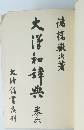 諸橋轍次著
大漢和辭典
卷六
大修館書店刊